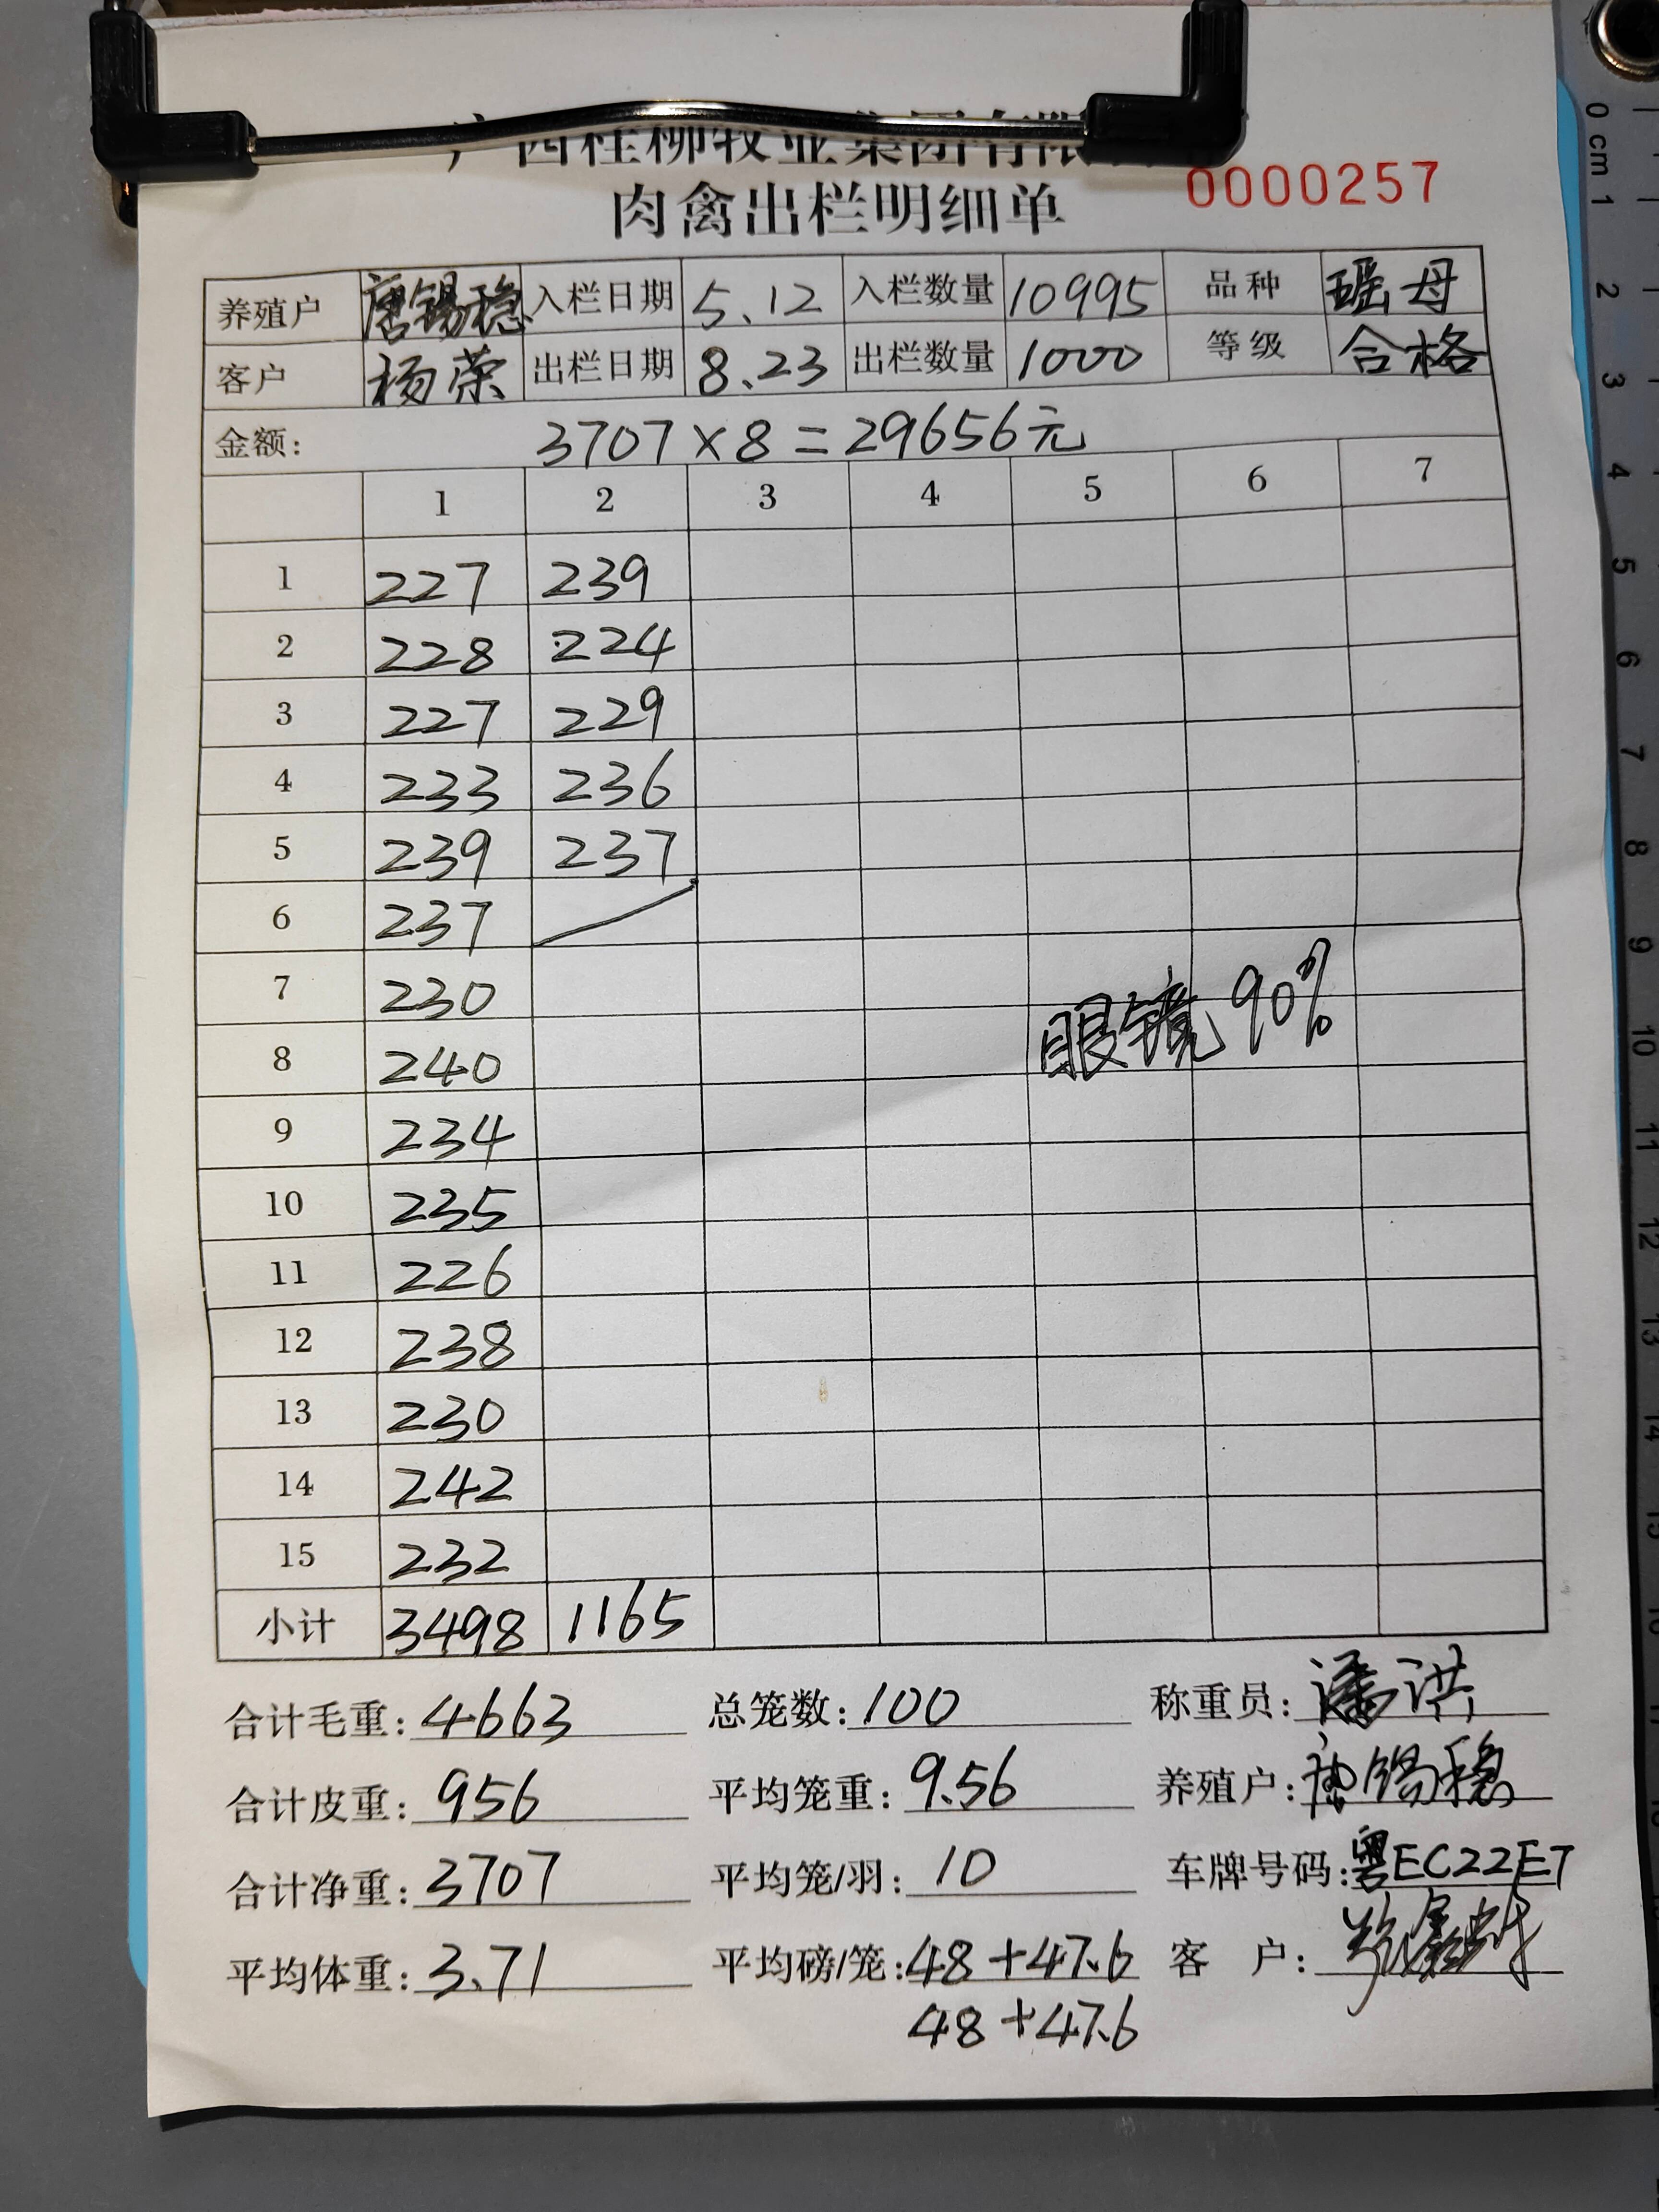 广西桂柳牧业集团有限
肉禽出栏明细单 0000257
养殖户 唐锡稳 入栏日期 5.12 入栏数量 10995 品种 瑶母
客户 杨荣 出栏日期 8.23 出栏数量 1000 等级 合格
金额: 3707×8=29656元
1 2 3 4 5 6 7
1 227 239
2 228 224
3 227 229
4 233 236
5 239 237
6 237
7 230
眼镜90%
8 240
9 234
10 235
11 226
12 238
13 230
14 242
15 232
小计 3498 1165
合计毛重: 4663 总笼数: 100 称重员: 潘洪
合计皮重: 956 平均笼重: 9.56 养殖户: 唐锡稳
合计净重: 3707 平均笼/羽: 10 车牌号码: 粤EC22E7
平均体重: 3.71 平均磅/笼: 48+47.6 客 户:
48+47.6
0 cm 1
2
3
4
5
6
7
8
9
10
11
12
13
14
15